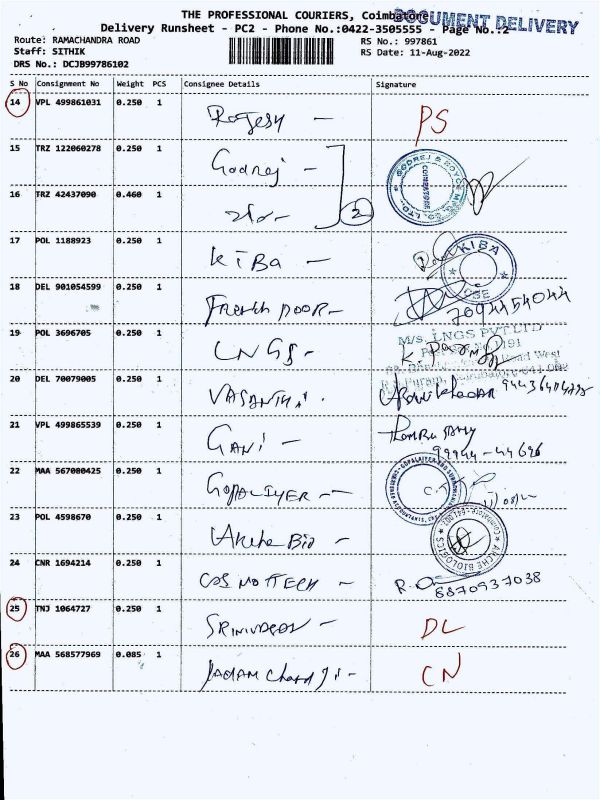 THE PROFESSIONAL COURIERS, Coimbatore
DOCUMENT DELIVERY
Delivery Runsheet - PC2 - Phone No.:0422-3505555 - Page No.:2
Route: RAMACHANDRA ROAD
RS No.: 997861
Staff: SITHIK
RS Date: 11-Aug-2022
DRS No.: DCJB99786102
S No Consignment No Weight PCS Consignee Details Signature
14 VPL 499861031 0.250 1 Rajesh - PS
15 TRZ 122060278 0.250 1 Godrej -
GODREJ & BOYCE MFG. CO. LTD.
COIMBATORE
16 TRZ 42437090 0.460 1 2
17 POL 1188923 0.250 1 KIBA - KIBA CBE
18 DEL 901054599 0.250 1 French Door-
19 POL 3696705 0.250 1 LNGS-
M/s. LNGS PVT LTD
20 DEL 70079005 0.250 1 VASANTHI.
21 VPL 499865539 0.250 1 GANI -
99944-44626
22 MAA 567080425 0.250 1 GOPALIYER --
23 POL 4598670 0.250 1 Arche Bio -
ARCHE BIOLOGICS
24 CNR 1694214 0.250 1 COSMOTTECH -
8870937038
25 TNJ 1064727 0.250 1 SRINIVASAN - DL
26 MAA 568577969 0.085 1 CN